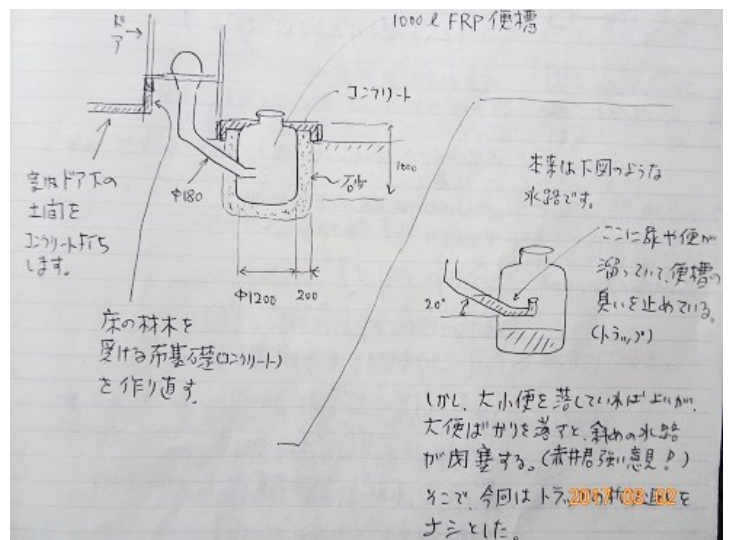 ドア
1000ℓ FRP 便槽
コンクリート
1000
砂
φ180
φ1200
200
ドア下の
土間を
コンクリート打ち
します。
床の材木を
受ける布基礎(コンクリート)
を作り直す。
本来は下図のような
水路です。
ここに尿や便が
溜っていて、便槽の
臭いを止めている。
(トラップ)
20°
しかし、大小便を落していれば よいが、
大便ばかりを落すと、斜めの水路
が閉塞する。(赤井君強い意見!)
そこで、今回は トラップの を
ナシとした。